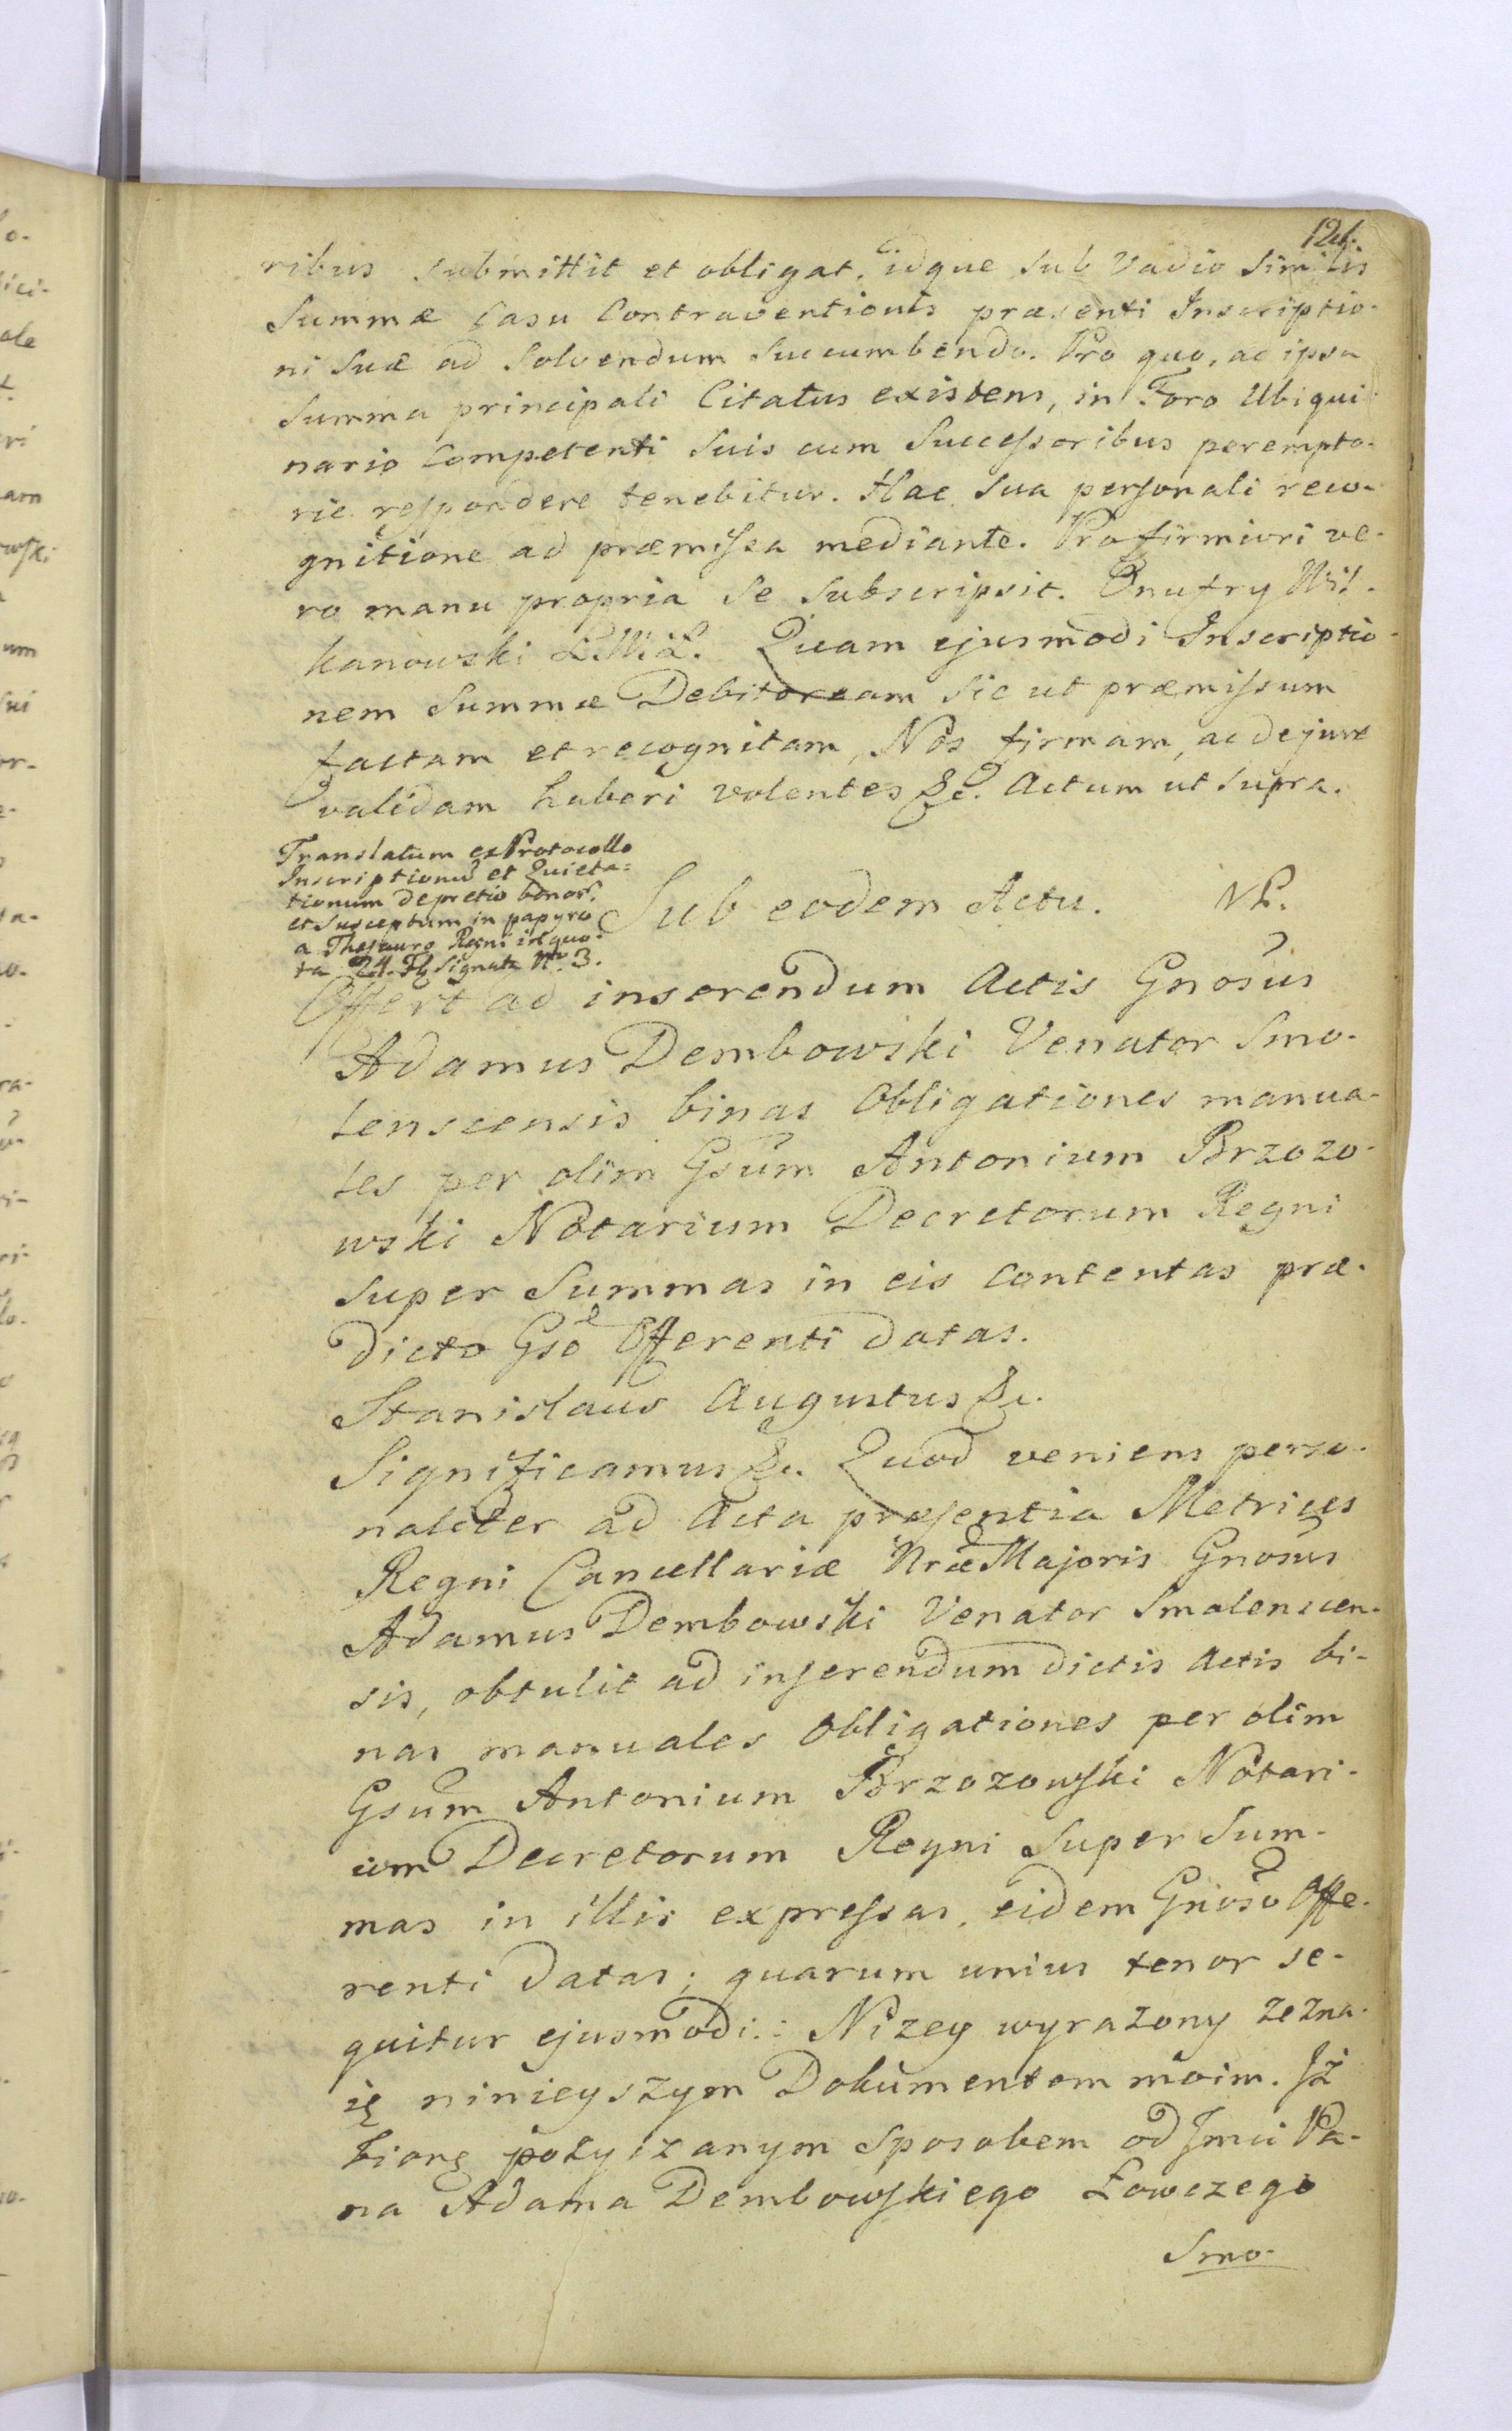 ribus submittit et obligat. idque sub Vadio similis
Summæ Casu Contraventionis præsenti Inscriptio-
ni suæ ad solvendum succumbendo. Pro quo, ac ipsa
Summa principali Citatus existens, in Foro Ubiqui
nario Competenti suis cum Successoribus perempto-
rie respondere tenebitur. Hac sua personali reco-
gnitione ad præmissa mediante. Pro firmiori ve-
ro manu propria se subscripsit. Onufry Wil-
kanowski Quam ejusmodi Inscriptio-
nem Summæ Debitoream sic ut præmissum
factam et recognitam, Nos firmam, ac de jure
validam haberi volentes &c. Actum ut supra.
Translatum ex Protocollo
Inscriptionũ et Quieta=
tionum de pretio bonor̃.
et Susceptum in papyro
a Thesauro Regni in quo-
ta 24. Fl. Signata Nr̃o 3.
Sub eodem Actu. NP.
Offert ad inserendum Actis Gnosus
Adamus Dembowski Venator Smo-
lenscensis binas Obligationes manua-
les per olim Gsum Antonium Brzozo-
wski Notarium Decretorum Regni
super Summas in eis contentas præ-
dicto Gso Offerenti datas.
Stanislaus Augustus &c.
Significamus &c. Quod veniens perso-
naliter ad Acta præsentia Metrices
Regni Cancellariæ Nræ Majoris Gnosus
Adamus Dembowski Venator Smolenscen-
sis, obtulit ad inserendum dictis Actis bi-
nas manuales Obligationes per olim
Gsum Antonium Brzozowski Notari-
um Decretorum Regni super Sum-
mas in illis expressas, eidem Gnoso Offe-
renti datas; quarum unius tenor se-
quitur ejusmodi: Nizey wyrazony zezna-
ię ninieyszym Dokumentem moim. Iż
biorę pożyczanym sposobem od Jmci Pa-
na Adama Dembowskiego Łowczego
Smo-